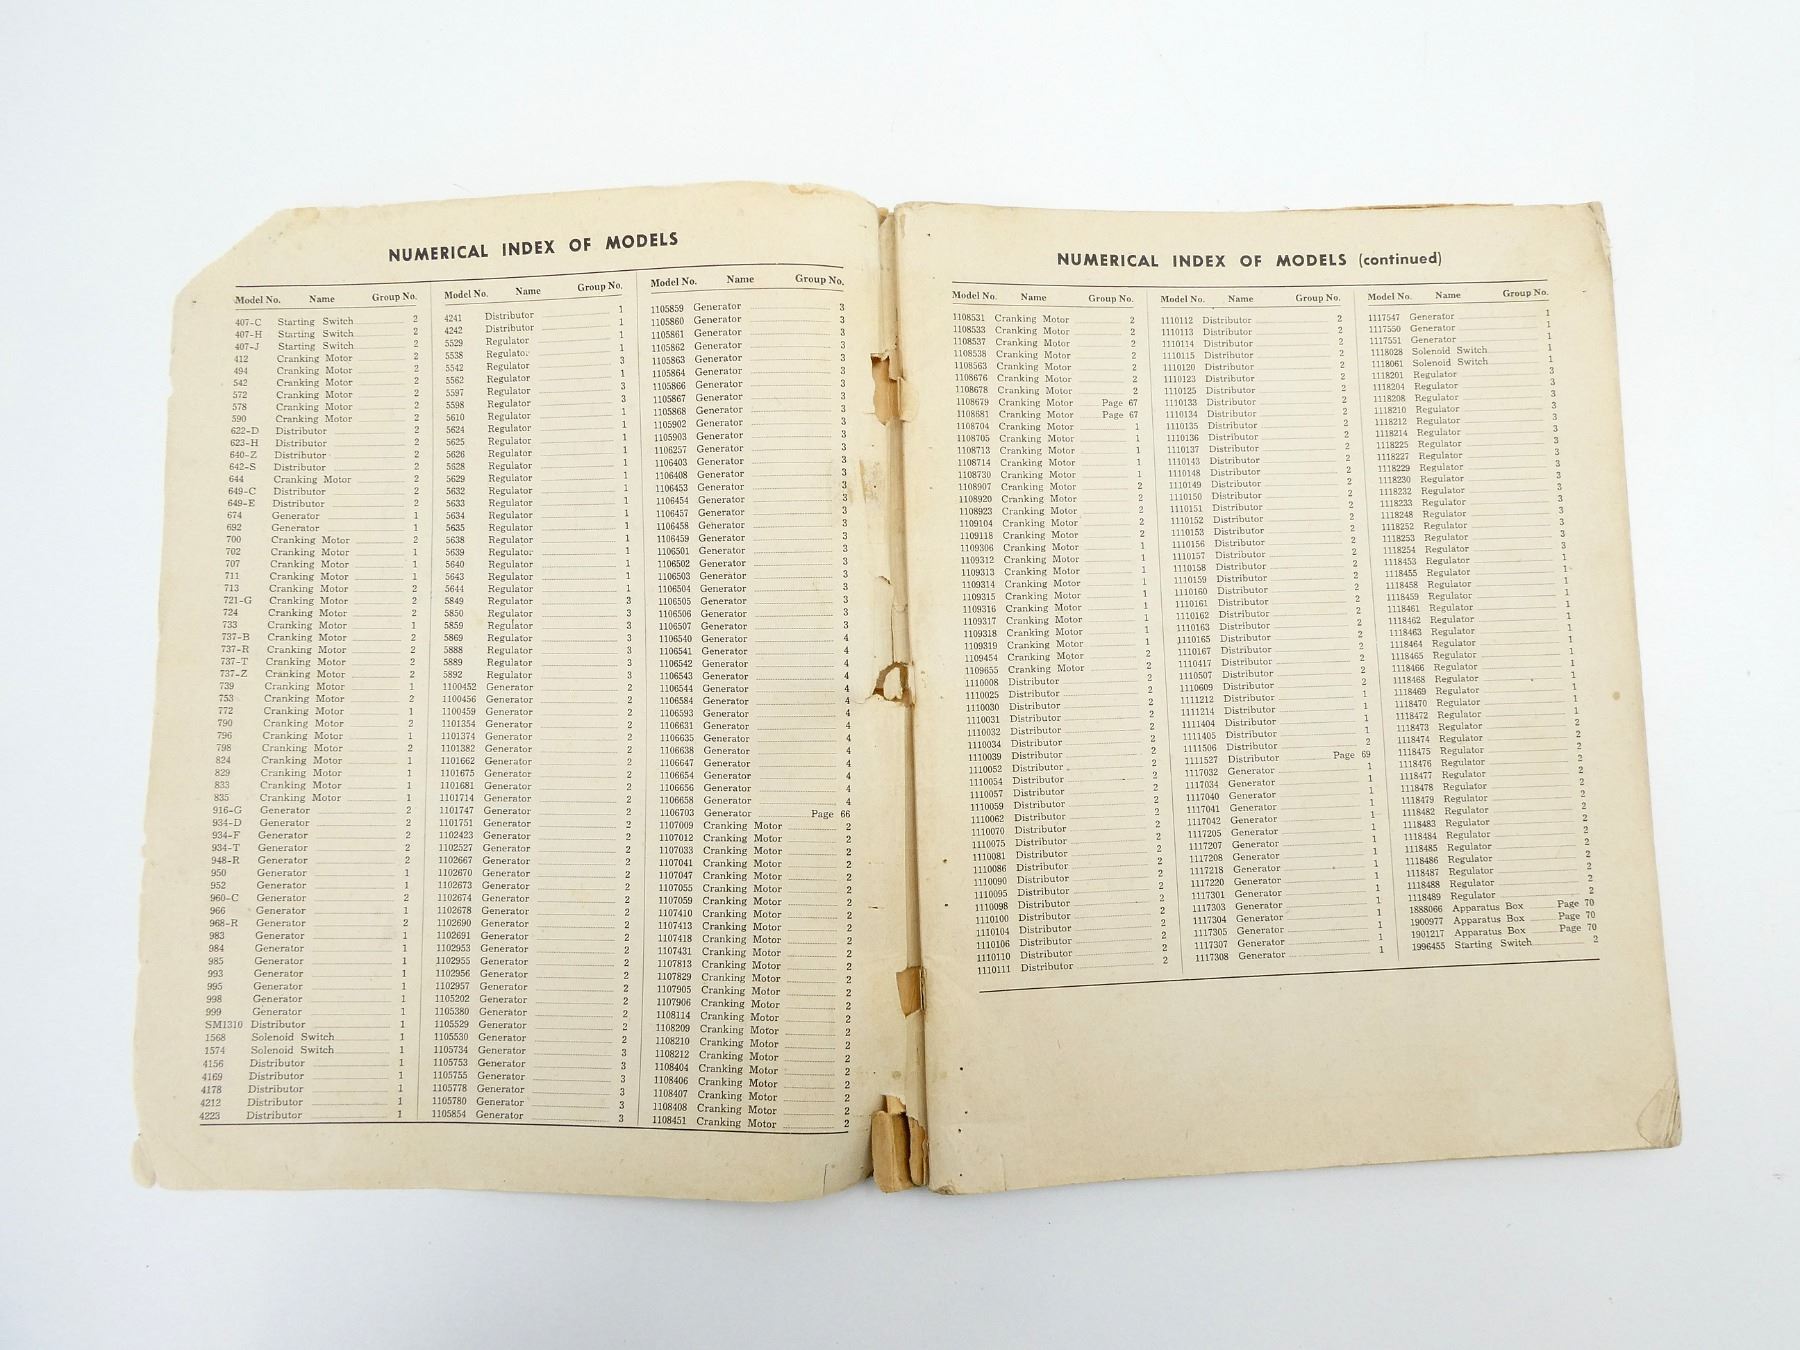 NUMERICAL INDEX OF MODELS
Model No. Name Group No.
407-C Starting Switch 2
407-H Starting Switch 2
407-J Starting Switch 2
412 Cranking Motor 2
494 Cranking Motor 2
542 Cranking Motor 2
572 Cranking Motor 2
578 Cranking Motor 2
590 Cranking Motor 2
622-D Distributor 2
623-H Distributor 2
640-Z Distributor 2
642-S Distributor 2
644 Cranking Motor 2
649-C Distributor 2
649-E Distributor 2
674 Generator 1
692 Generator 1
700 Cranking Motor 2
702 Cranking Motor 1
707 Cranking Motor 1
711 Cranking Motor 1
713 Cranking Motor 2
721-G Cranking Motor 2
724 Cranking Motor 2
733 Cranking Motor 1
737-B Cranking Motor 2
737-R Cranking Motor 2
737-T Cranking Motor 2
737-Z Cranking Motor 2
739 Cranking Motor 1
753 Cranking Motor 2
772 Cranking Motor 1
790 Cranking Motor 2
796 Cranking Motor 1
798 Cranking Motor 2
824 Cranking Motor 1
829 Cranking Motor 1
833 Cranking Motor 1
835 Cranking Motor 1
916-G Generator 2
934-D Generator 2
934-F Generator 2
934-T Generator 2
948-R Generator 2
950 Generator 1
952 Generator 1
960-C Generator 2
966 Generator 1
968-R Generator 2
983 Generator 1
984 Generator 1
985 Generator 1
993 Generator 1
995 Generator 1
998 Generator 1
999 Generator 1
SM1310 Distributor 1
1568 Solenoid Switch 1
1574 Solenoid Switch 1
4156 Distributor 1
4169 Distributor 1
4178 Distributor 1
4212 Distributor 1
4223 Distributor 1
Model No. Name Group No.
4241 Distributor 1
4242 Distributor 1
5529 Regulator 1
5538 Regulator 1
5542 Regulator 3
5562 Regulator 1
5597 Regulator 3
5598 Regulator 3
5610 Regulator 1
5624 Regulator 1
5625 Regulator 1
5626 Regulator 1
5628 Regulator 1
5629 Regulator 1
5632 Regulator 1
5633 Regulator 1
5634 Regulator 1
5635 Regulator 1
5638 Regulator 1
5639 Regulator 1
5640 Regulator 1
5643 Regulator 1
5644 Regulator 1
5849 Regulator 3
5850 Regulator 3
5859 Regulator 3
5869 Regulator 3
5888 Regulator 3
5889 Regulator 3
5892 Regulator 3
1100452 Generator 2
1100456 Generator 2
1100459 Generator 2
1101354 Generator 2
1101374 Generator 2
1101382 Generator 2
1101662 Generator 2
1101675 Generator 2
1101681 Generator 2
1101714 Generator 2
1101747 Generator 2
1101751 Generator 2
1102423 Generator 2
1102527 Generator 2
1102667 Generator 2
1102670 Generator 2
1102673 Generator 2
1102674 Generator 2
1102678 Generator 2
1102690 Generator 2
1102691 Generator 2
1102953 Generator 2
1102955 Generator 2
1102956 Generator 2
1102957 Generator 2
1105202 Generator 2
1105380 Generator 2
1105529 Generator 2
1105530 Generator 2
1105734 Generator 3
1105753 Generator 3
1105755 Generator 3
1105778 Generator 3
1105780 Generator 3
1105854 Generator 3
Model No. Name Group No.
1105859 Generator 3
1105860 Generator 3
1105861 Generator 3
1105862 Generator 3
1105863 Generator 3
1105864 Generator 3
1105866 Generator 3
1105867 Generator 3
1105868 Generator 3
1105902 Generator 3
1105903 Generator 3
1106257 Generator 3
1106403 Generator 3
1106408 Generator 3
1106453 Generator 3
1106454 Generator 3
1106457 Generator 3
1106458 Generator 3
1106459 Generator 3
1106501 Generator 3
1106502 Generator 3
1106503 Generator 3
1106504 Generator 3
1106505 Generator 3
1106506 Generator 3
1106507 Generator 3
1106540 Generator 4
1106541 Generator 4
1106542 Generator 4
1106543 Generator 4
1106544 Generator 4
1106584 Generator 4
1106593 Generator 4
1106631 Generator 4
1106635 Generator 4
1106638 Generator 4
1106647 Generator 4
1106654 Generator 4
1106656 Generator 4
1106658 Generator 4
1106703 Generator Page 66
1107009 Cranking Motor 2
1107012 Cranking Motor 2
1107033 Cranking Motor 2
1107041 Cranking Motor 2
1107047 Cranking Motor 2
1107055 Cranking Motor 2
1107059 Cranking Motor 2
1107410 Cranking Motor 2
1107413 Cranking Motor 2
1107418 Cranking Motor 2
1107431 Cranking Motor 2
1107813 Cranking Motor 2
1107829 Cranking Motor 2
1107905 Cranking Motor 2
1107906 Cranking Motor 2
1108114 Cranking Motor 2
1108209 Cranking Motor 2
1108210 Cranking Motor 2
1108212 Cranking Motor 2
1108404 Cranking Motor 2
1108406 Cranking Motor 2
1108407 Cranking Motor 2
1108408 Cranking Motor 2
1108451 Cranking Motor 2
NUMERICAL INDEX OF MODELS (continued)
Model No. Name Group No.
1108531 Cranking Motor 2
1108533 Cranking Motor 2
1108537 Cranking Motor 2
1108538 Cranking Motor 2
1108563 Cranking Motor 2
1108676 Cranking Motor 2
1108678 Cranking Motor 2
1108679 Cranking Motor Page 67
1108681 Cranking Motor Page 67
1108704 Cranking Motor 1
1108705 Cranking Motor 1
1108713 Cranking Motor 1
1108714 Cranking Motor 1
1108730 Cranking Motor 1
1108907 Cranking Motor 2
1108920 Cranking Motor 2
1108923 Cranking Motor 2
1109104 Cranking Motor 2
1109118 Cranking Motor 2
1109306 Cranking Motor 1
1109312 Cranking Motor 1
1109313 Cranking Motor 1
1109314 Cranking Motor 1
1109315 Cranking Motor 1
1109316 Cranking Motor 1
1109317 Cranking Motor 1
1109318 Cranking Motor 1
1109319 Cranking Motor 1
1109454 Cranking Motor 2
1109655 Cranking Motor 2
1110008 Distributor 2
1110025 Distributor 2
1110030 Distributor 2
1110031 Distributor 2
1110032 Distributor 2
1110034 Distributor 2
1110039 Distributor 2
1110052 Distributor 2
1110054 Distributor 2
1110057 Distributor 2
1110059 Distributor 2
1110062 Distributor 2
1110070 Distributor 2
1110075 Distributor 2
1110081 Distributor 2
1110086 Distributor 2
1110090 Distributor 2
1110095 Distributor 2
1110098 Distributor 2
1110100 Distributor 2
1110104 Distributor 2
1110106 Distributor 2
1110110 Distributor 2
1110111 Distributor 2
Model No. Name Group No.
1110112 Distributor 2
1110113 Distributor 2
1110114 Distributor 2
1110115 Distributor 2
1110120 Distributor 2
1110123 Distributor 2
1110125 Distributor 2
1110133 Distributor 2
1110134 Distributor 2
1110135 Distributor 2
1110136 Distributor 2
1110137 Distributor 2
1110143 Distributor 2
1110148 Distributor 2
1110149 Distributor 2
1110150 Distributor 2
1110151 Distributor 2
1110152 Distributor 2
1110153 Distributor 2
1110156 Distributor 2
1110157 Distributor 2
1110158 Distributor 2
1110159 Distributor 2
1110160 Distributor 2
1110161 Distributor 2
1110162 Distributor 2
1110163 Distributor 2
1110165 Distributor 2
1110167 Distributor 2
1110417 Distributor 2
1110507 Distributor 2
1110609 Distributor 2
1111212 Distributor 1
1111214 Distributor 1
1111404 Distributor 1
1111405 Distributor 1
1111506 Distributor 2
1111527 Distributor Page 69
1117032 Generator 1
1117034 Generator 1
1117040 Generator 1
1117041 Generator 1
1117042 Generator 1
1117205 Generator 1
1117207 Generator 1
1117208 Generator 1
1117218 Generator 1
1117220 Generator 1
1117301 Generator 1
1117303 Generator 1
1117304 Generator 1
1117305 Generator 1
1117307 Generator 1
1117308 Generator 1
Model No. Name Group No.
1117547 Generator 1
1117550 Generator 1
1117551 Generator 1
1118028 Solenoid Switch 1
1118061 Solenoid Switch 1
1118201 Regulator 3
1118204 Regulator 3
1118208 Regulator 3
1118210 Regulator 3
1118212 Regulator 3
1118214 Regulator 3
1118225 Regulator 3
1118227 Regulator 3
1118229 Regulator 3
1118230 Regulator 3
1118232 Regulator 3
1118233 Regulator 3
1118248 Regulator 3
1118252 Regulator 3
1118253 Regulator 3
1118254 Regulator 3
1118453 Regulator 1
1118455 Regulator 1
1118458 Regulator 1
1118459 Regulator 1
1118461 Regulator 1
1118462 Regulator 1
1118463 Regulator 1
1118464 Regulator 1
1118465 Regulator 1
1118466 Regulator 1
1118468 Regulator 1
1118469 Regulator 1
1118470 Regulator 1
1118472 Regulator 1
1118473 Regulator 2
1118474 Regulator 2
1118475 Regulator 2
1118476 Regulator 2
1118477 Regulator 2
1118478 Regulator 2
1118479 Regulator 2
1118482 Regulator 2
1118483 Regulator 2
1118484 Regulator 2
1118485 Regulator 2
1118486 Regulator 2
1118487 Regulator 2
1118488 Regulator 2
1118489 Regulator 2
1888066 Apparatus Box Page 70
1900977 Apparatus Box Page 70
1901217 Apparatus Box Page 70
1996455 Starting Switch 2